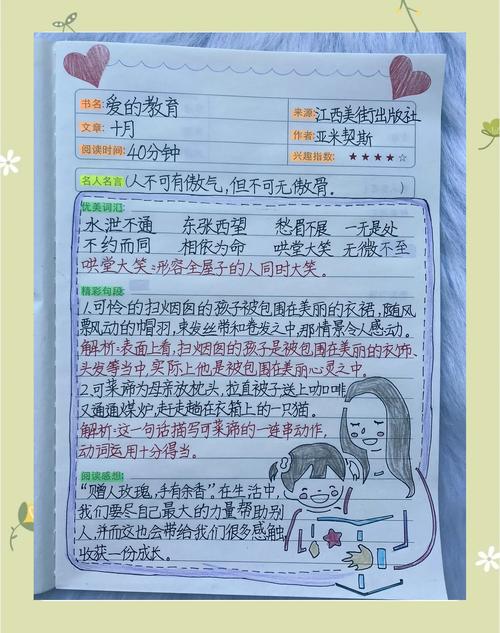 书名: 爱的教育
来源: 江西美术出版社
文章: 十月
作者: 亚米契斯
阅读时间: 40分钟
兴趣指数: ★★★★☆
名人名言(人不可有傲气,但不可无傲骨.)
优美词汇:
水泄不通 东张西望 愁眉不展 一无是处
不约而同 相依为命 哄堂大笑 无微不至
哄堂大笑:形容全屋子的人同时大笑。
精彩句段:
1.可怜的扫烟囱的孩子被包围在美丽的衣裙,随风
票风动的帽羽,束发丝带和卷发之中,那情景令人感动。
解析:表面上看,扫烟囱的孩子是被包围在美丽的衣饰、
头发等当中,实际上他是被包围在美丽心灵之中.
2.可莱谛为母亲放枕头,拉直被子送上咖啡
又通通煤炉,走走趟在衣箱上的一只猫。
解析:这一句话描写可莱谛的一连串动作,
动词运用十分得当。
阅读感想:
“赠人玫瑰,手有余香”在生活中,
我们要尽自己最大的力量帮助别
人,并而这也会带给我们很多感触
收获一份成长。